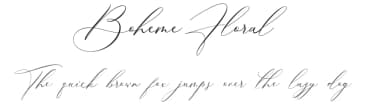 Boheme Floral
The quick brown fox jumps over the lazy dog